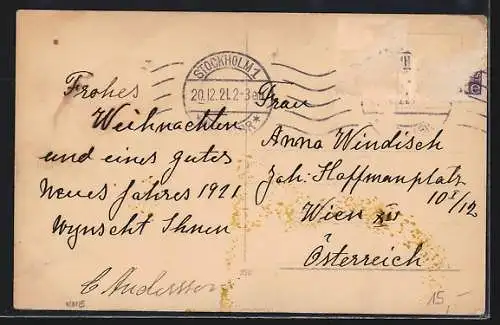 STOCKHOLM 1
20.12.21.2-3 em
Frohes
Weihnachten
und eines gutes
neues Jahres 1921
wynscht Ihnen
C Andersson
Frau
Anna Windisch
Joh. Hoffmanplatz
10 I/12
Wien XII
Österreich
15,-